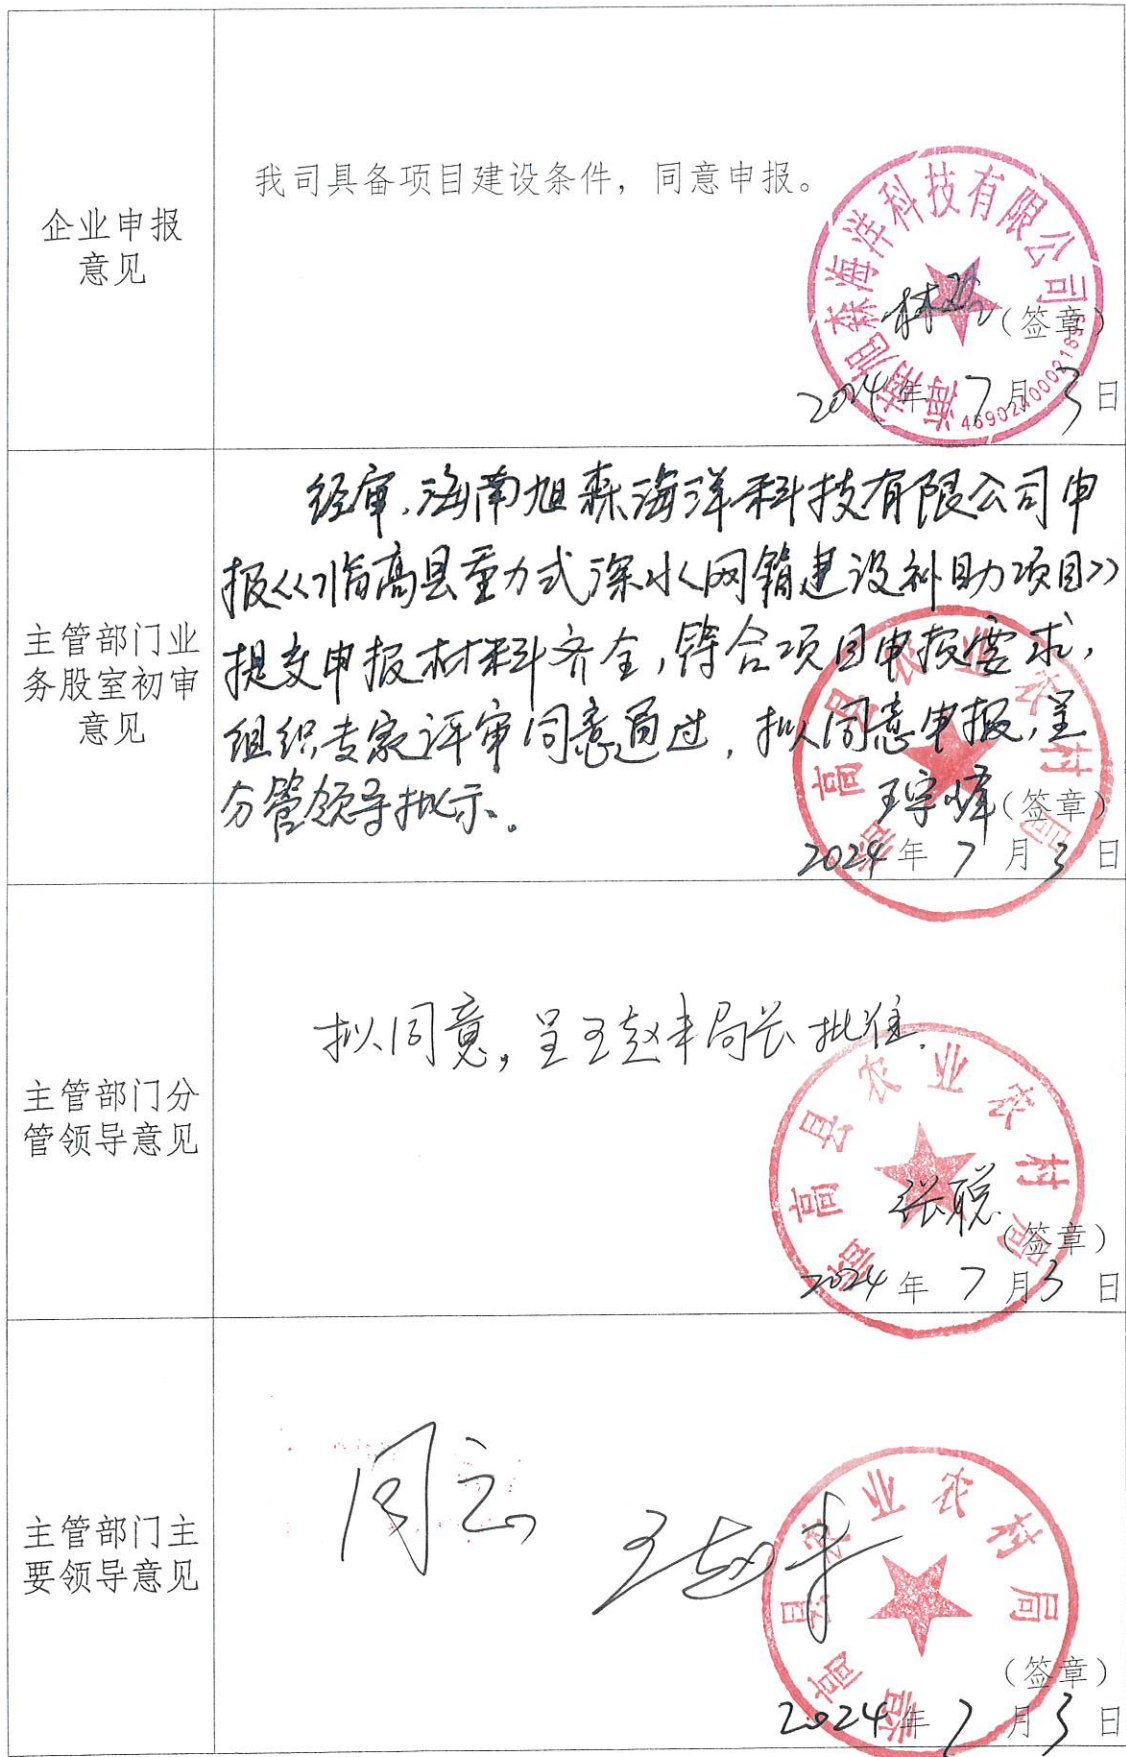 企业申报
意见
我司具备项目建设条件，同意申报。
海南旭森海洋科技有限公司
（签章）
2024年7月3日
主管部门业
务股室初审
意见
经审,海南旭森海洋科技有限公司申
报《临高县重力式深水网箱建设补助项目》
提交申报材料齐全,符合项目申报要求,
组织专家评审同意通过,拟同意申报,呈
分管领导批示。
临高县农业农村局
王宇烽（签章）
2024年7月3日
主管部门分
管领导意见
拟同意,呈王赵丰局长批准.
临高县农业农村局
张聪
（签章）
2024年7月3日
主管部门主
要领导意见
同意
王赵丰
临高县农业农村局
（签章）
2024年7月3日